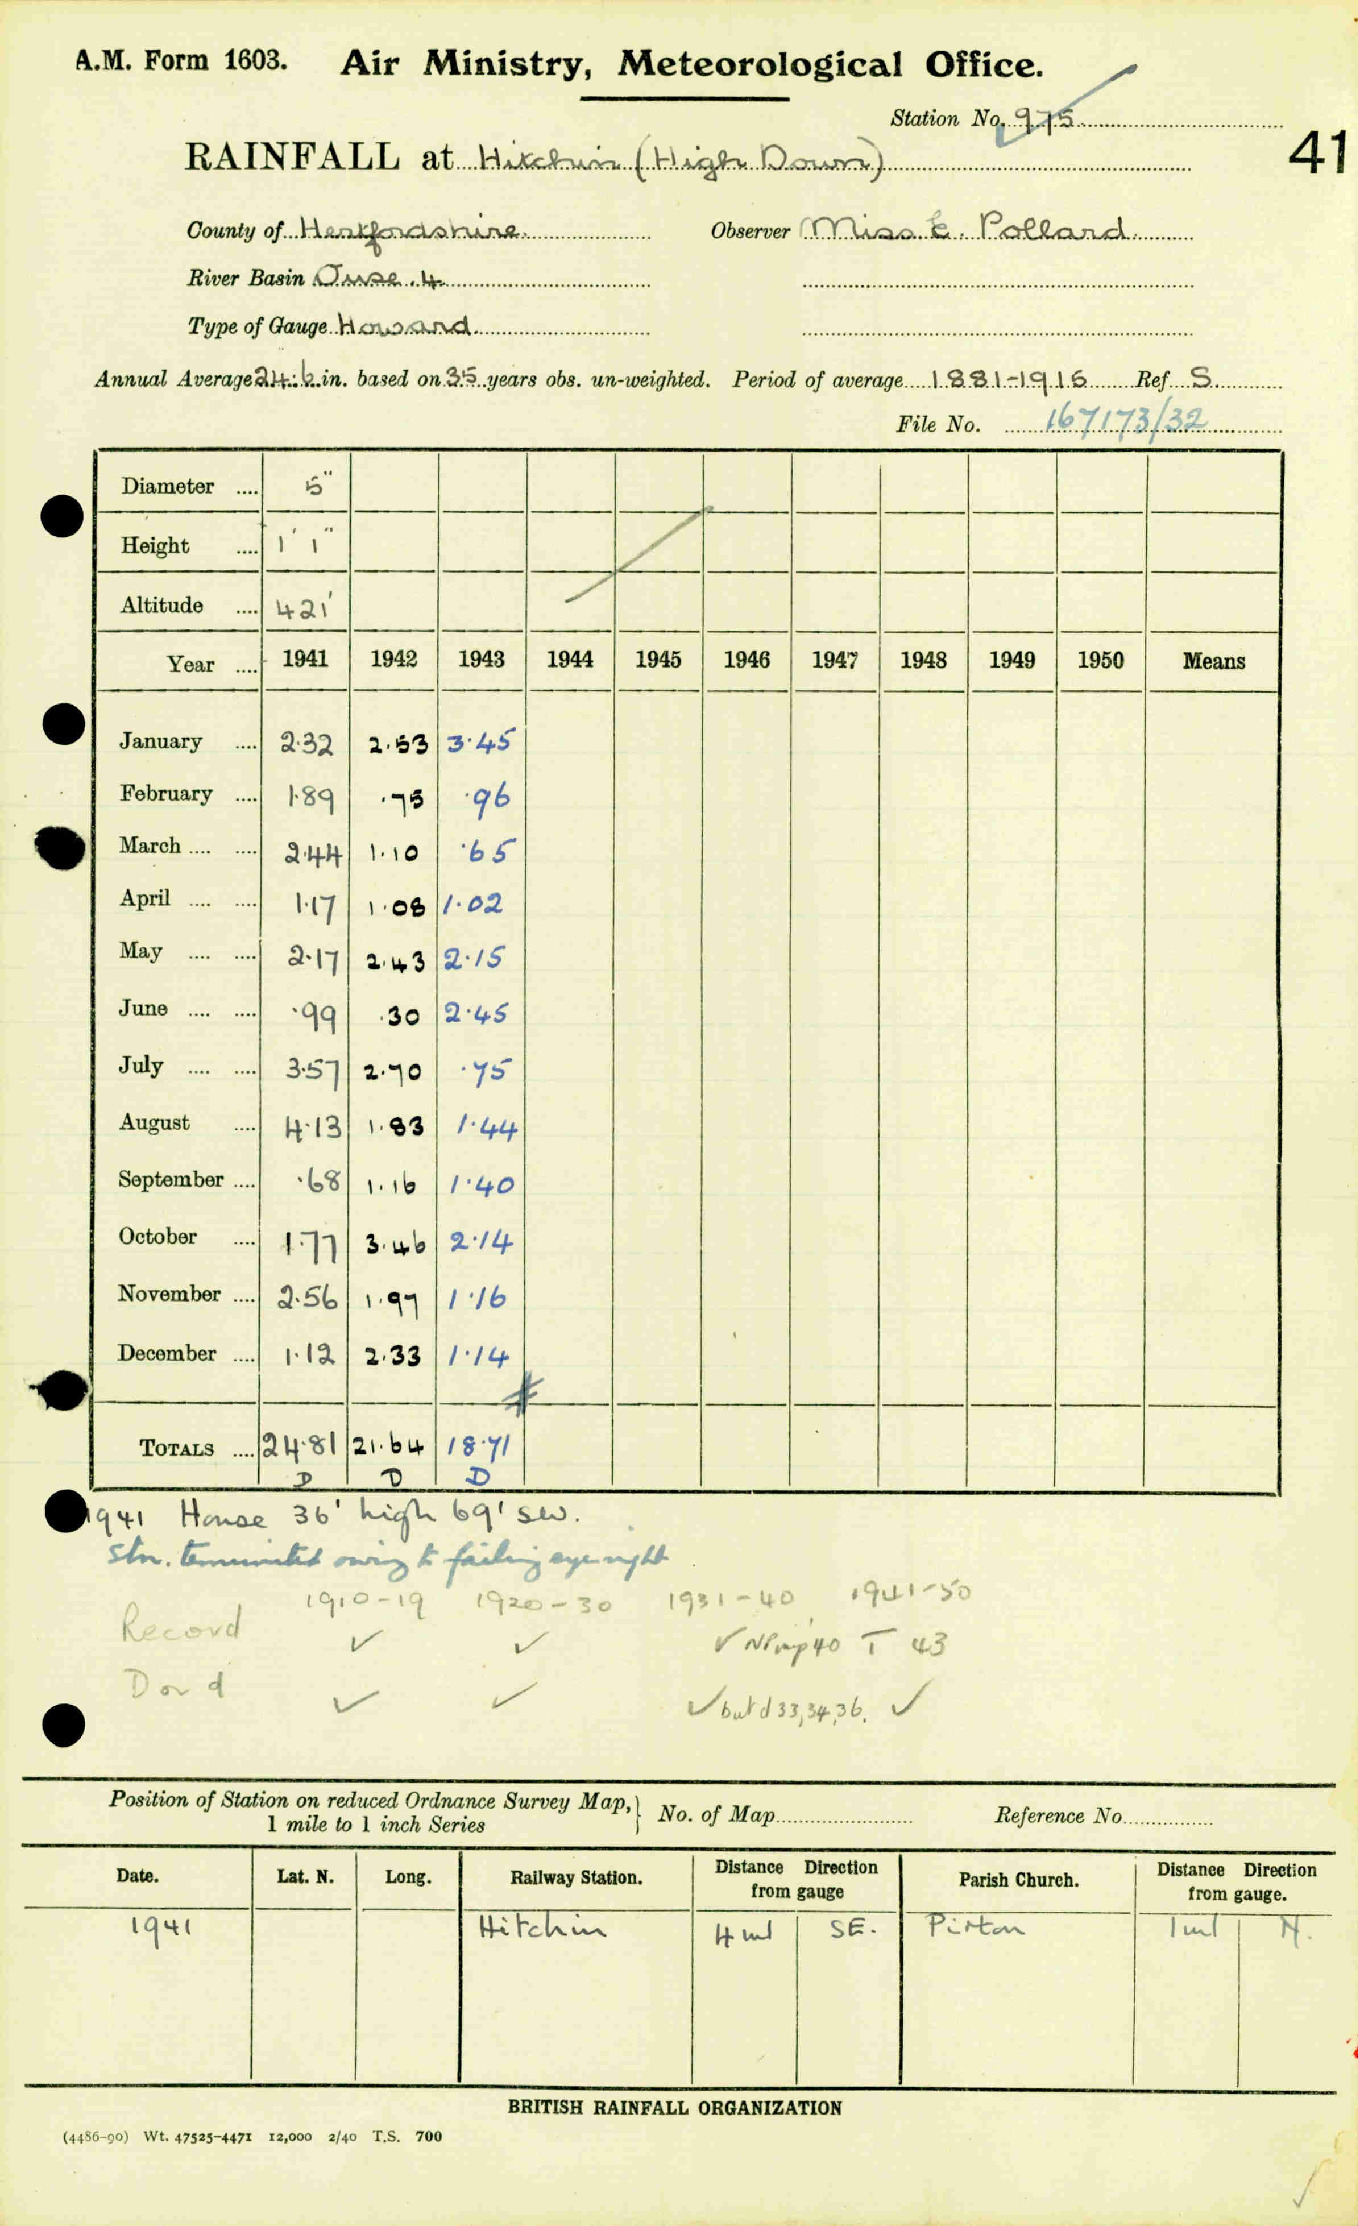 A.M. Form 1603. Air Ministry, Meteorological Office.
Station No. 975
41
RAINFALL at Hitchin (High Down)
County of Hertfordshire. Observer Miss E. Pollard.
River Basin Ouse. 4
Type of Gauge Howard
Annual Average 24.6 in. based on 35 years obs. un-weighted. Period of average 1881-1915 Ref S
File No. 167173/32
Diameter .... 5"
Height .... 1' 1"
Altitude .... 421'
Year .... 1941 1942 1943 1944 1945 1946 1947 1948 1949 1950 Means
January .... 2.32 2.53 3.45
February .... 1.89 .75 .96
March .... .... 2.44 1.10 .65
April .... .... 1.17 1.08 1.02
May .... .... 2.17 2.43 2.15
June .... .... .99 .30 2.45
July .... .... 3.57 2.70 .75
August .... 4.13 1.83 1.44
September .... .68 1.16 1.40
October .... 1.77 3.46 2.14
November .... 2.56 1.97 1.16
December .... 1.12 2.33 1.14
TOTALS .... 24.81 21.64 18.71
D D D
1941 House 36' high 69' SW.
Stn. terminated owing to failing eyesight
1910-19 1920-30 1931-40 1941-50
Record ✓ ✓ ✓ 40 T 43
D or d ✓ ✓ ✓ but d 33,34,36. ✓
Position of Station on reduced Ordnance Survey Map, } No. of Map Reference No.
1 mile to 1 inch Series
Date. Lat. N. Long. Railway Station. Distance Direction from gauge Parish Church. Distance Direction from gauge.
1941 Hitchin 4 ml SE. Pirton 1 ml N.
BRITISH RAINFALL ORGANIZATION
(4486-90) Wt. 47525-4471 12,000 2/40 T.S. 700